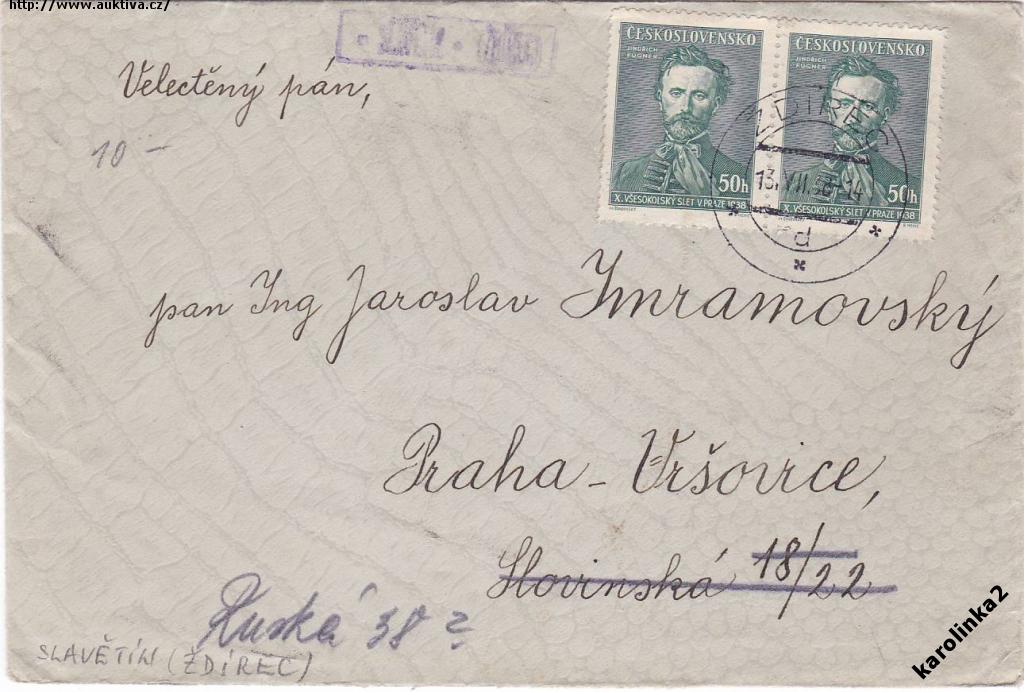 http://www.auktiva.cz/
ČESKOSLOVENSKO
JINDŘICH
FÜGNER
50h
X. VŠESOKOLSKÝ SLET V PRAZE 1938
ČESKOSLOVENSKO
JINDŘICH
FÜGNER
50h
X. VŠESOKOLSKÝ SLET V PRAZE 1938
ŽDÍREC
13.VII.38-14
d
Velectěný pán,
10 –
pan Ing Jaroslav Imramovský
Praha – Vršovice,
Slovinská 18/22
Ruská 38 ?
SLAVĚTÍN (ŽDÍREC)
karolinka2